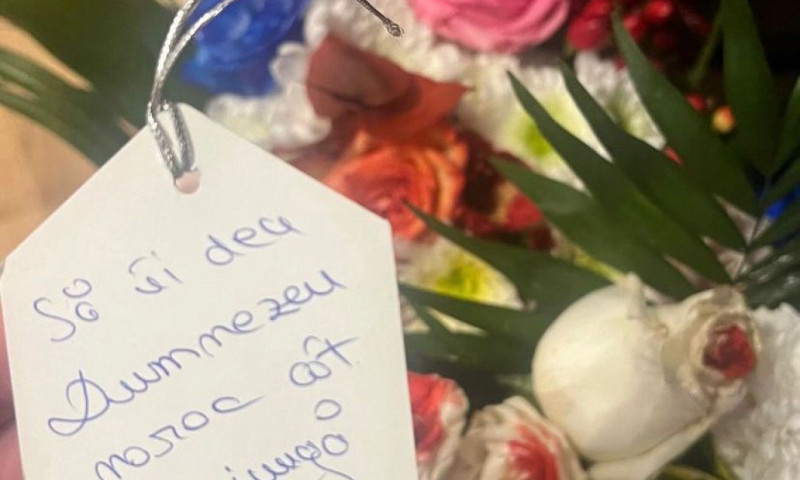 Să îi dea
Dumnezeu
noroc cât